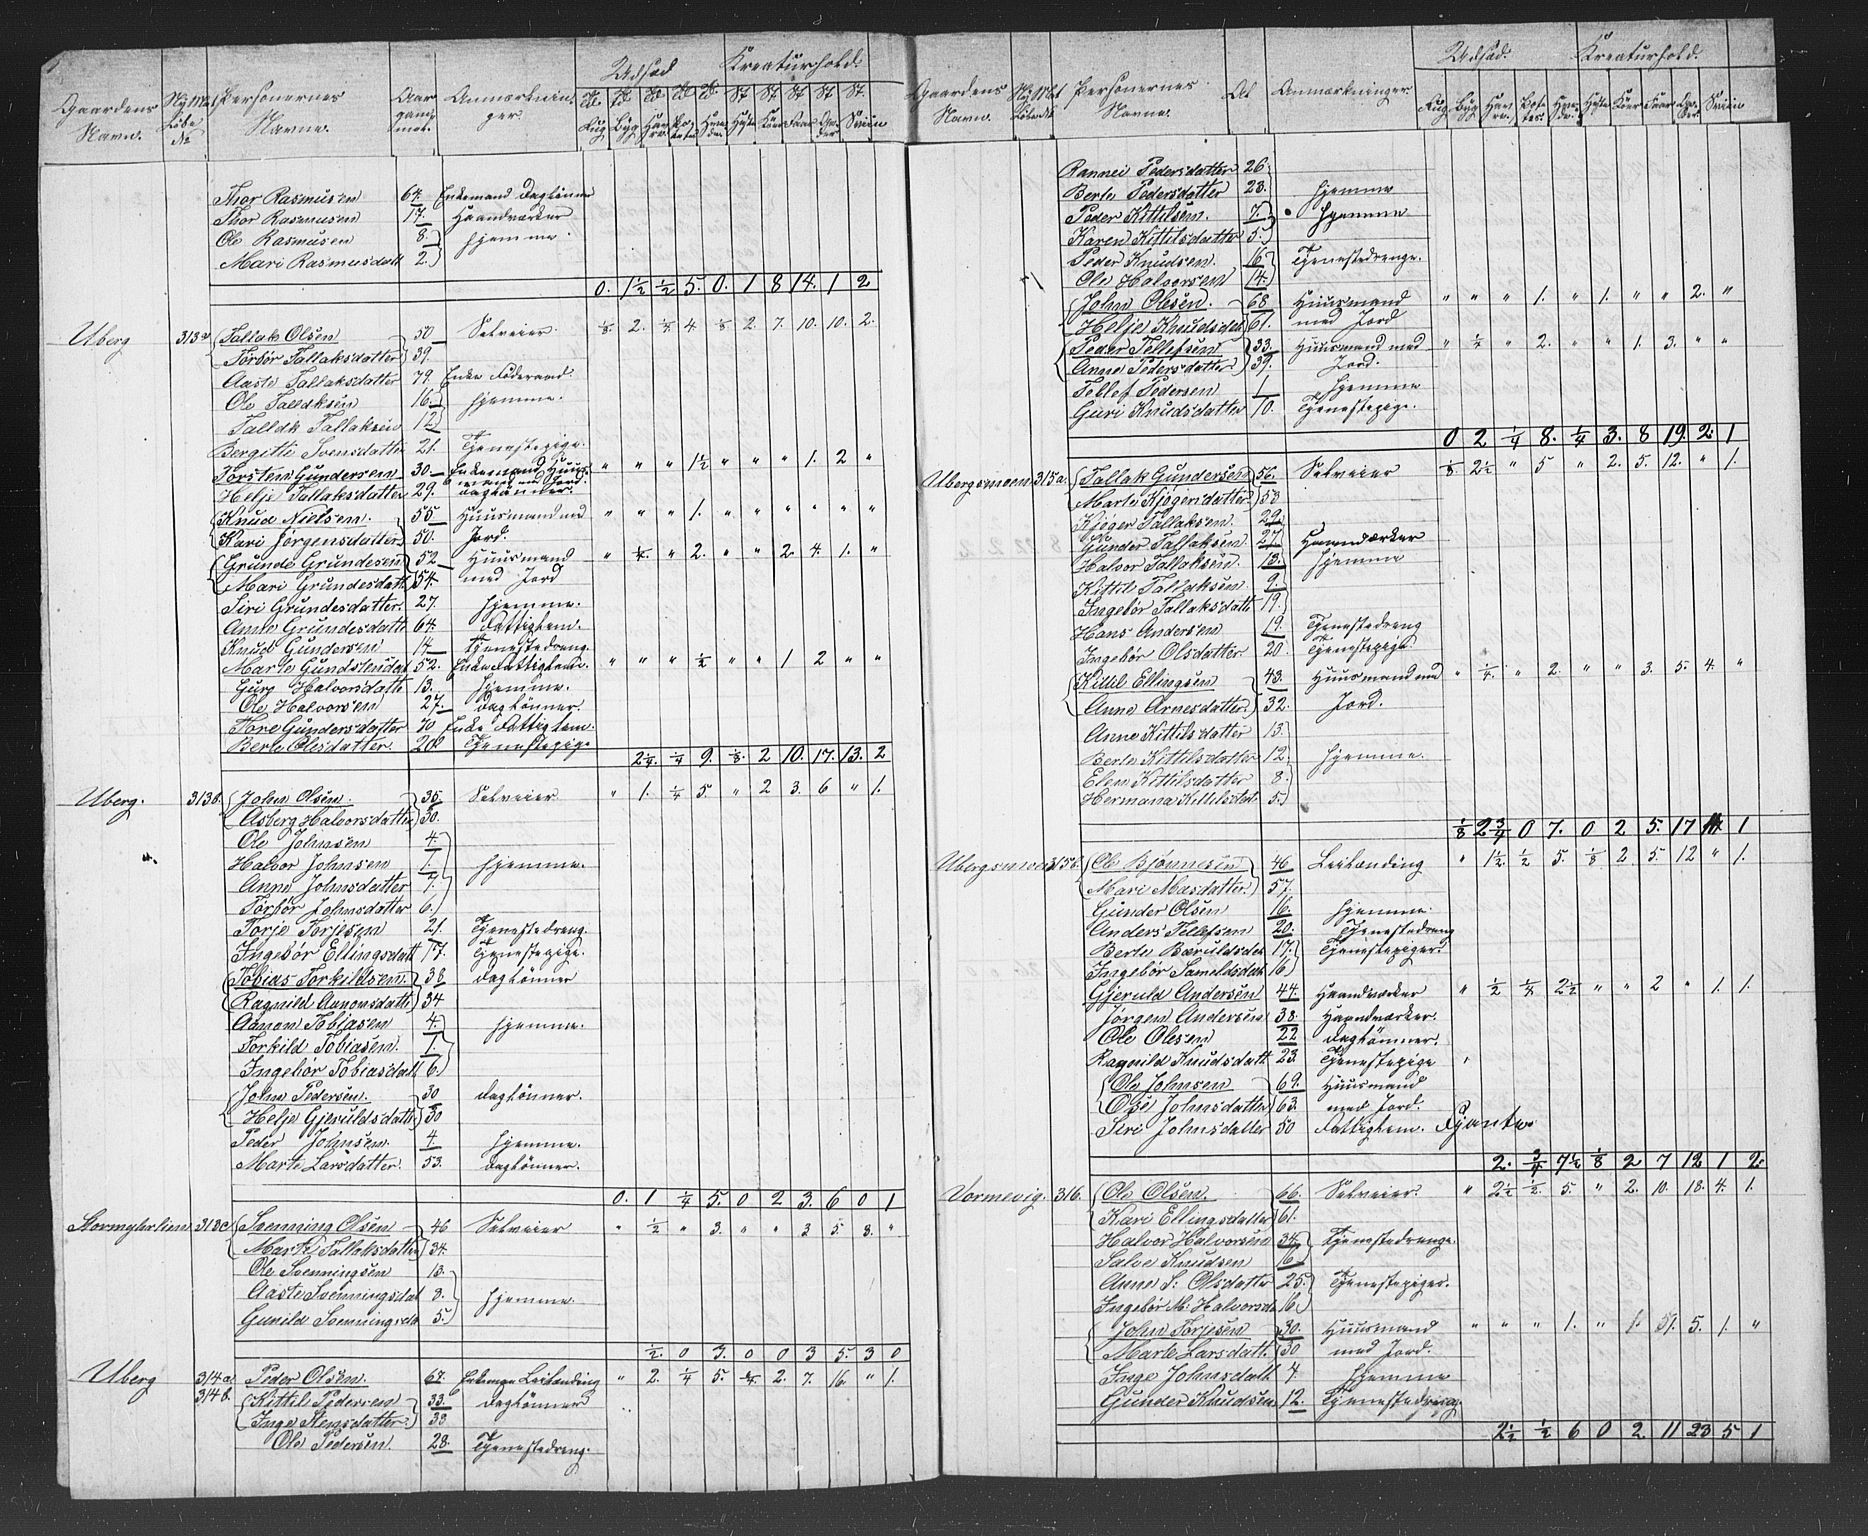 Gaardens Navn. Ny Mat Løbe № Personernes Navne. Aargang. Anmærkninger. Udsæd Kreaturhold.
Rug Byg Havre Heste Kører Faar Sviin
Thor Rasmusen 67. Enkemand Daglønner
Thor Rasmusen 17. Haandværker
Ole Rasmusen 8. hjemme.
Mari Rasmusdatt 2.
0. 1½ ½ 5. 0. 1 8 14. 1 2
Uberg 313a Tallak Olsen 50 Selveier. ⅛ 2. ¼ 4 ⅛ 2. 7. 10. 10. 2.
Torbør Tallaksdatter 39.
Aaste Tallaksdatter 79. Enke Føderaad.
Ole Tallaksen 16. hjemme.
Tallak Tallaksen 12
Bergitte Svensdatter 21. Tjenestepige.
Torsten Gundersen 30. Enkemand Huusmand med Jord. " " " 1½ " " " 1. 2 "
Helje Tallaksdatter 29. daglønner.
Knud Nielsen. 55 Huusmand med " " " 1. " " " " " "
Kari Jørgensdatter 50. Jord.
Grunde Grundesen 52 Huusmand " ¼ " 2. " " 2 4. 1. "
Mari Grundesdatt 54. med Jord
Siri Grundesdatter. 27. hjemme.
Anne Grundesdatt 64. Fattiglem.
Knud Gundersen 14 Tjenestedreng.
Marte Gundersdat 52. Enke Fattiglem. " " " ½ " " 1 2 " "
Guro Halvorsdatte 13. hjemme.
Ole Halvorsen 27. daglønner.
Tore Gundersdatter 70 Enke Fattiglem.
Berte Olesdatter. 20 Tjenestepige
2¼. ¼ 9. ⅛ 2 10. 17. 13. 2
Uberg. 313b. John Olsen 35. Selveier " 1. ¼ 5 " 2 3. 6 " 1.
Asberg Halvorsdatter 30.
Ole Johnsen 4.
Halvor Johnsen 1. hjemme.
Anne Johnsdatter 7.
Torbør Johnsdatter 6.
Torje Torjesen 21. Tjenestedreng.
Ingebør Ellingsdatt 17. Tjenestepige.
Tobias Torkildsen. 38 daglønner
Ragnild Amonsdatt. 34
Amon Tobiasen 4. hjemme.
Torkild Tobiasen. 1.
Ingebør Tobiasdatt 6.
John Pedersen. 30 dagløner.
Helje Gjeruldsdatt. 30
Peder Johnsen. 4 hjemme.
Marte Larsdatter. 53. dagløner.
0. 1 ¼ 5. 0 2 3. 6 0 1
313c Svenning Olsen 46 Selveier " ½ " 3. " " 3 5. 3. "
Marte Tallaksdatter 34.
Ole Svenningsen 13.
Aaste Svenningsdat 8. hjemme.
Gunild Svenningsda 5.
½ 0 3. 0 0 3 5. 3 0
Uberg 314a Peder Olsen. 67. Enkem. Leilænding " 2. ¼ 5. ¼ 2. 7. 16. " 1.
314b. Kittil Pedersen 33. dagløner
Inge Stensdatter. 33
Ole Pedersen 28. Tjenestedreng.
Gaardens Navn. Ny Mat Løbe № Personernes Navne. Al Anmærkninger. Udsæd. Kreaturhold.
Rug Byg Havr. Potetes. Heste Køer Faar Sviin
Rannei Pedersdatter 26.
Berte Pedersdatter 23. hjemme
Peder Kittilsen. 7. hjemme
Karen Kittilsdatter 5.
Peder Knudsen. 16. Tjenestedrenge.
Ole Halvorsen 14.
John Olsen. 68 Huusmand " " " 1. " 1. " " 2. "
Helje Knudsdat 61. med Jord
Peder Tellefsen 33. Huusmand med " ¼ " 2. " " 1. 3. " "
Anne Pedersdatter 39. Jord.
Tellef Pedersen 1 hjemme
Guri Knudsdatter 10. Tjenestepige.
0 2 ¼ 8. ¼ 3. 8 19. 2. 1
Ubergsmoen 315a. Tallak Gundersen 56. Selveier ⅛. 2½ " 5 " 2. 5. 12. " 1.
Marte Kjøgersdatter. 53
Kjøger Tallaksen. 29.
Gunder Tallaksen. 27 Haandværker
Halvor Tallaksen. 13. hjemme
Kittil Tallaksen 9.
Ingebør Tallaksdatt 19.
Hans Andersen 19. Tjenestedreng
Ingebør Olsdatter. 20. Tjenestepige
Kittil Ellingsen 43. Huusmand med " ¼. " 2. " " 3. 5. 4. "
Anne Arnesdatter. 32. Jord.
Anne Kittilsdatter 13.
Berte Kittilsdatter 12 hjemme.
Elen Kittilsdatter 8.
Hermana Kittilsdat. 5.
⅛ 2¾ 0 7. 0 2 5. 17 1
315b. Ole Bjønnesen 46 Leilænding " 1½. ½ 5. ⅛ 2 5. 12 " 1.
Mari Masdatter. 57.
Gunder Olsen 16. hjemme.
Anders Tellefsen 20. Tjenestedreng
Berte Bæruldsdat 17. Tjenestepiger.
Ingebør 16
Gjeruld Andersen 44. Haandværker " ½ ¼ 2½ " " 2 " 1. 1.
Jørgen Andersen 38. Haandværker.
Ole Olesen 22 dagløner.
Ragnild Knudsdatt 23. Tjenestepige
Ole Johnsen 69. Huusmand
Ose Johnsdatter 63. med Jord.
Siri Johnsdatter 50 Fattiglem.
2. ¾ 7½ ⅛ 2 7 12 1 2.
Vormevig. 316. Ole Olsen. 66. Selveier. " 2½ ½. 5. " 2. 10. 18. 4. 1.
Kari Ellingsdatter 61.
Halvor Halvorsen 34. Tjenestedrenge.
Salve Knudsen 16
Anne S. Olsdatter 25. Tjenestepiger.
Ingebør M. Halvorsda 16.
John Torjesen 30. Huusmand " " " 1. " 1. 1. 5. 1. "
Marte Larsdatt. 30 med Jord.
Inge Johnsdatt 4. hjemme
Gunder Knudsen 12. Tjenestedreng.
2½ ½ 6 0 2. 11 23 5 1